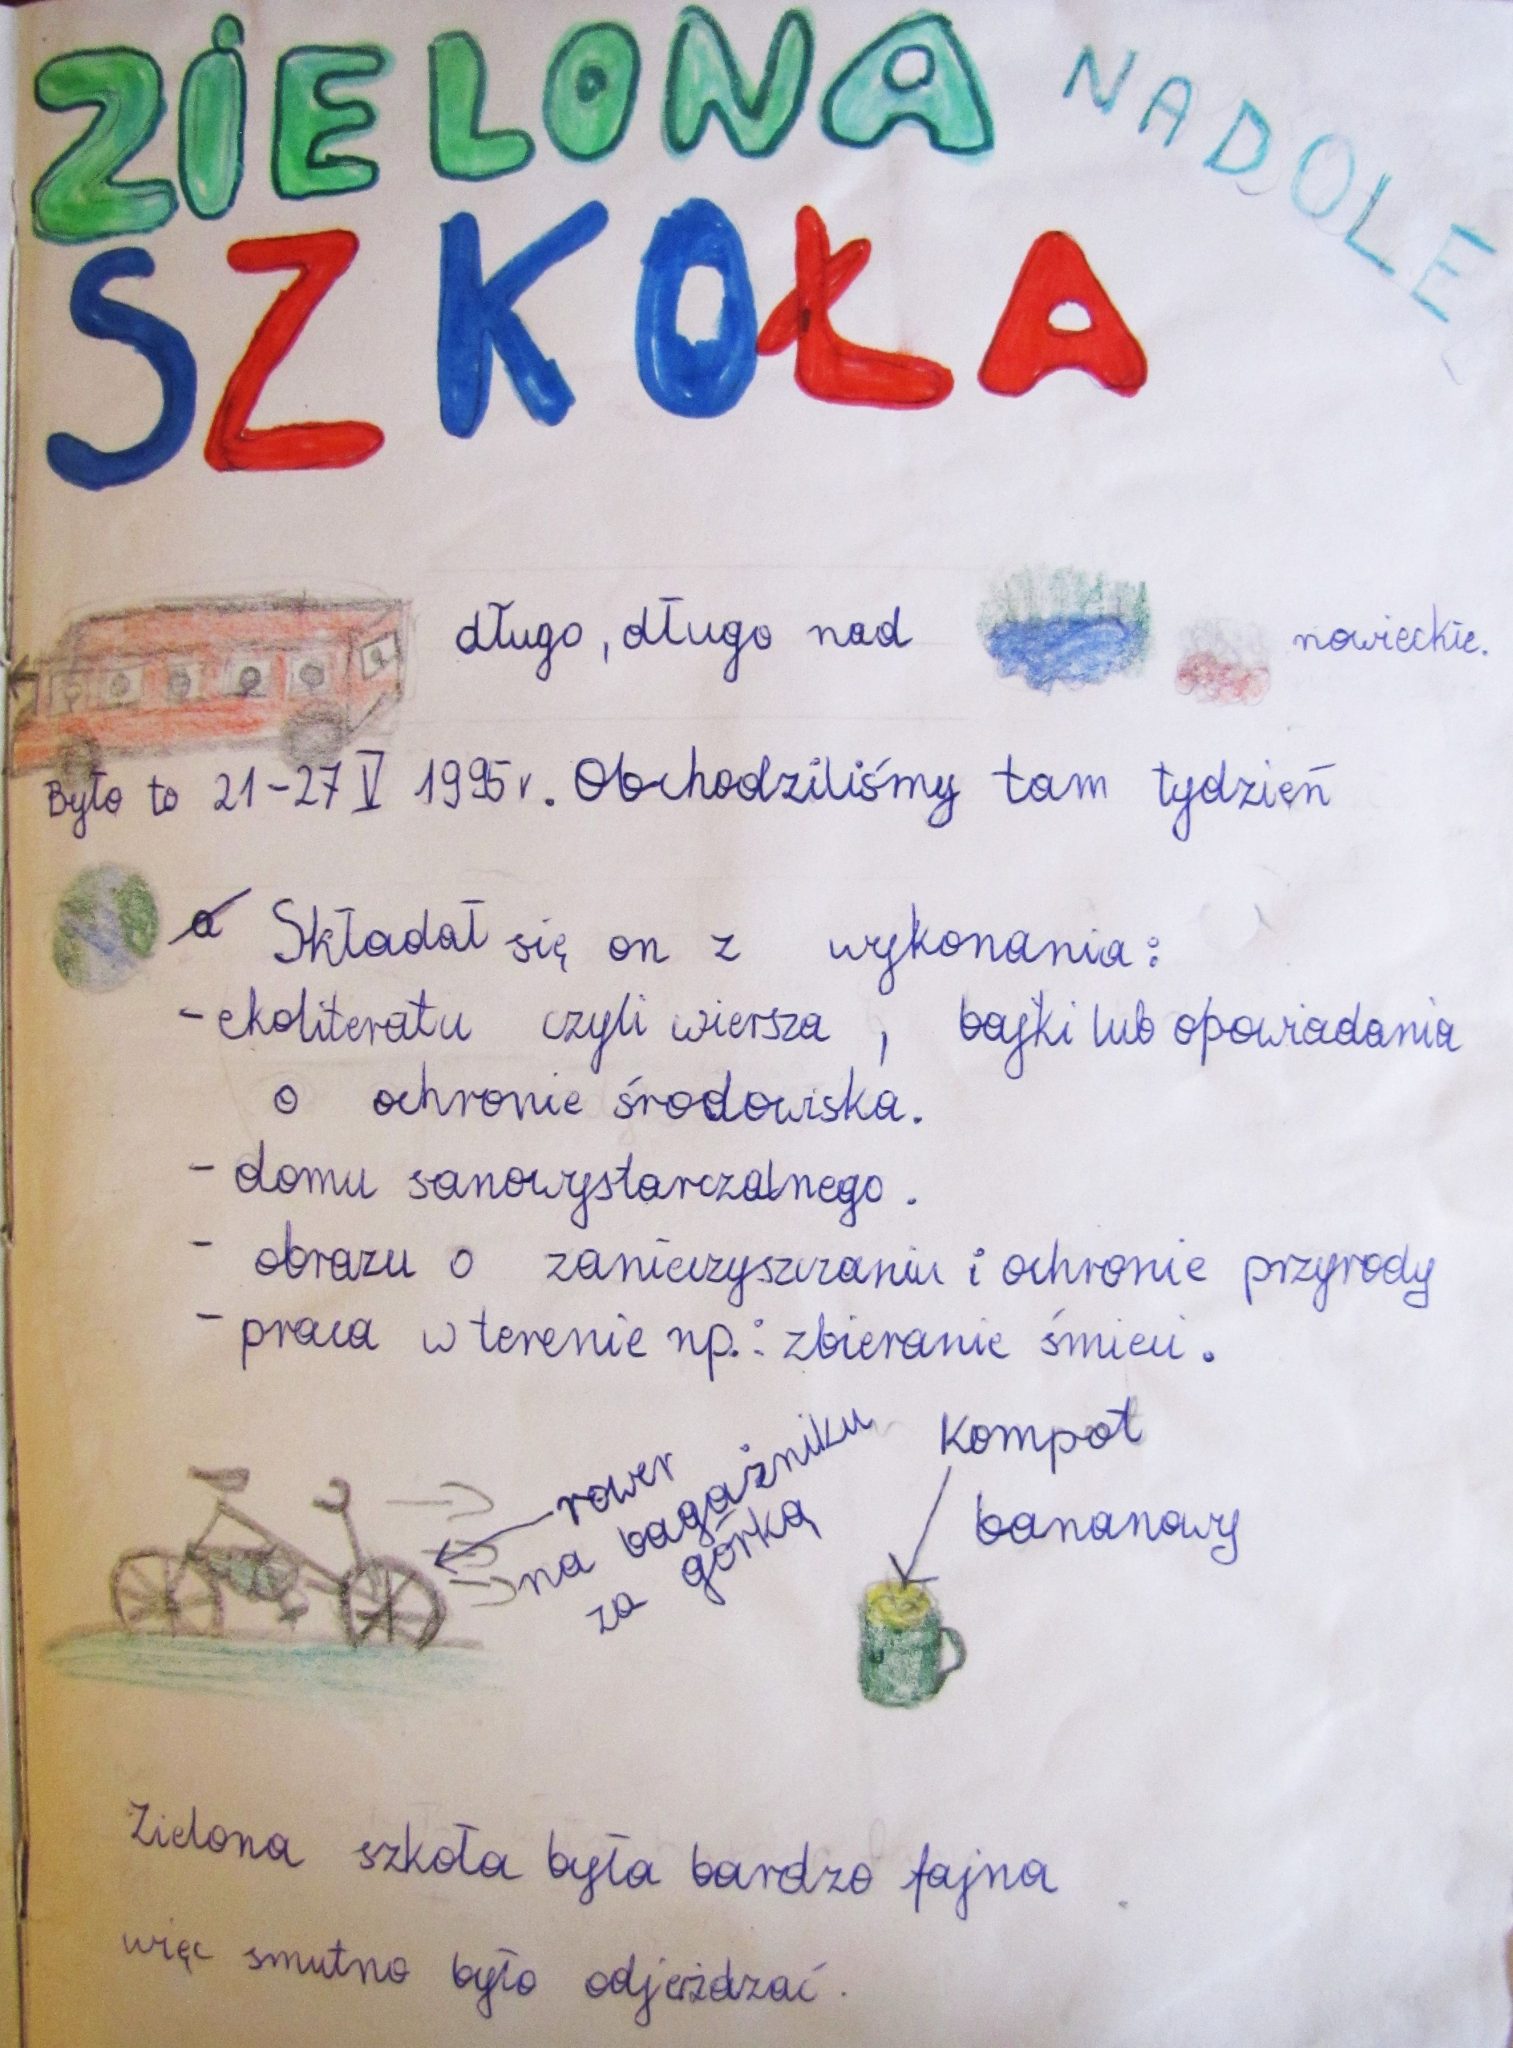 ZiELONA NADOLE
SZKOŁA
długo, długo nad nowieckie.
Było to 21-27 V 1995 r. Obchodziliśmy tam tydzień
a Składał się on z wykonania:
- ekoliteratu czyli wiersza , bajki lub opowiadania
o ochronie środowiska.
- domu sanowystarczalnego.
- obrazu o zanieczyszczaniu i ochronie przyrody
- praca w terenie np.: zbieranie śmieci.
rower
na bagażniku
za górką
Kompot
bananowy
Zielona szkoła była bardzo fajna
więc smutno było odjeżdzać.